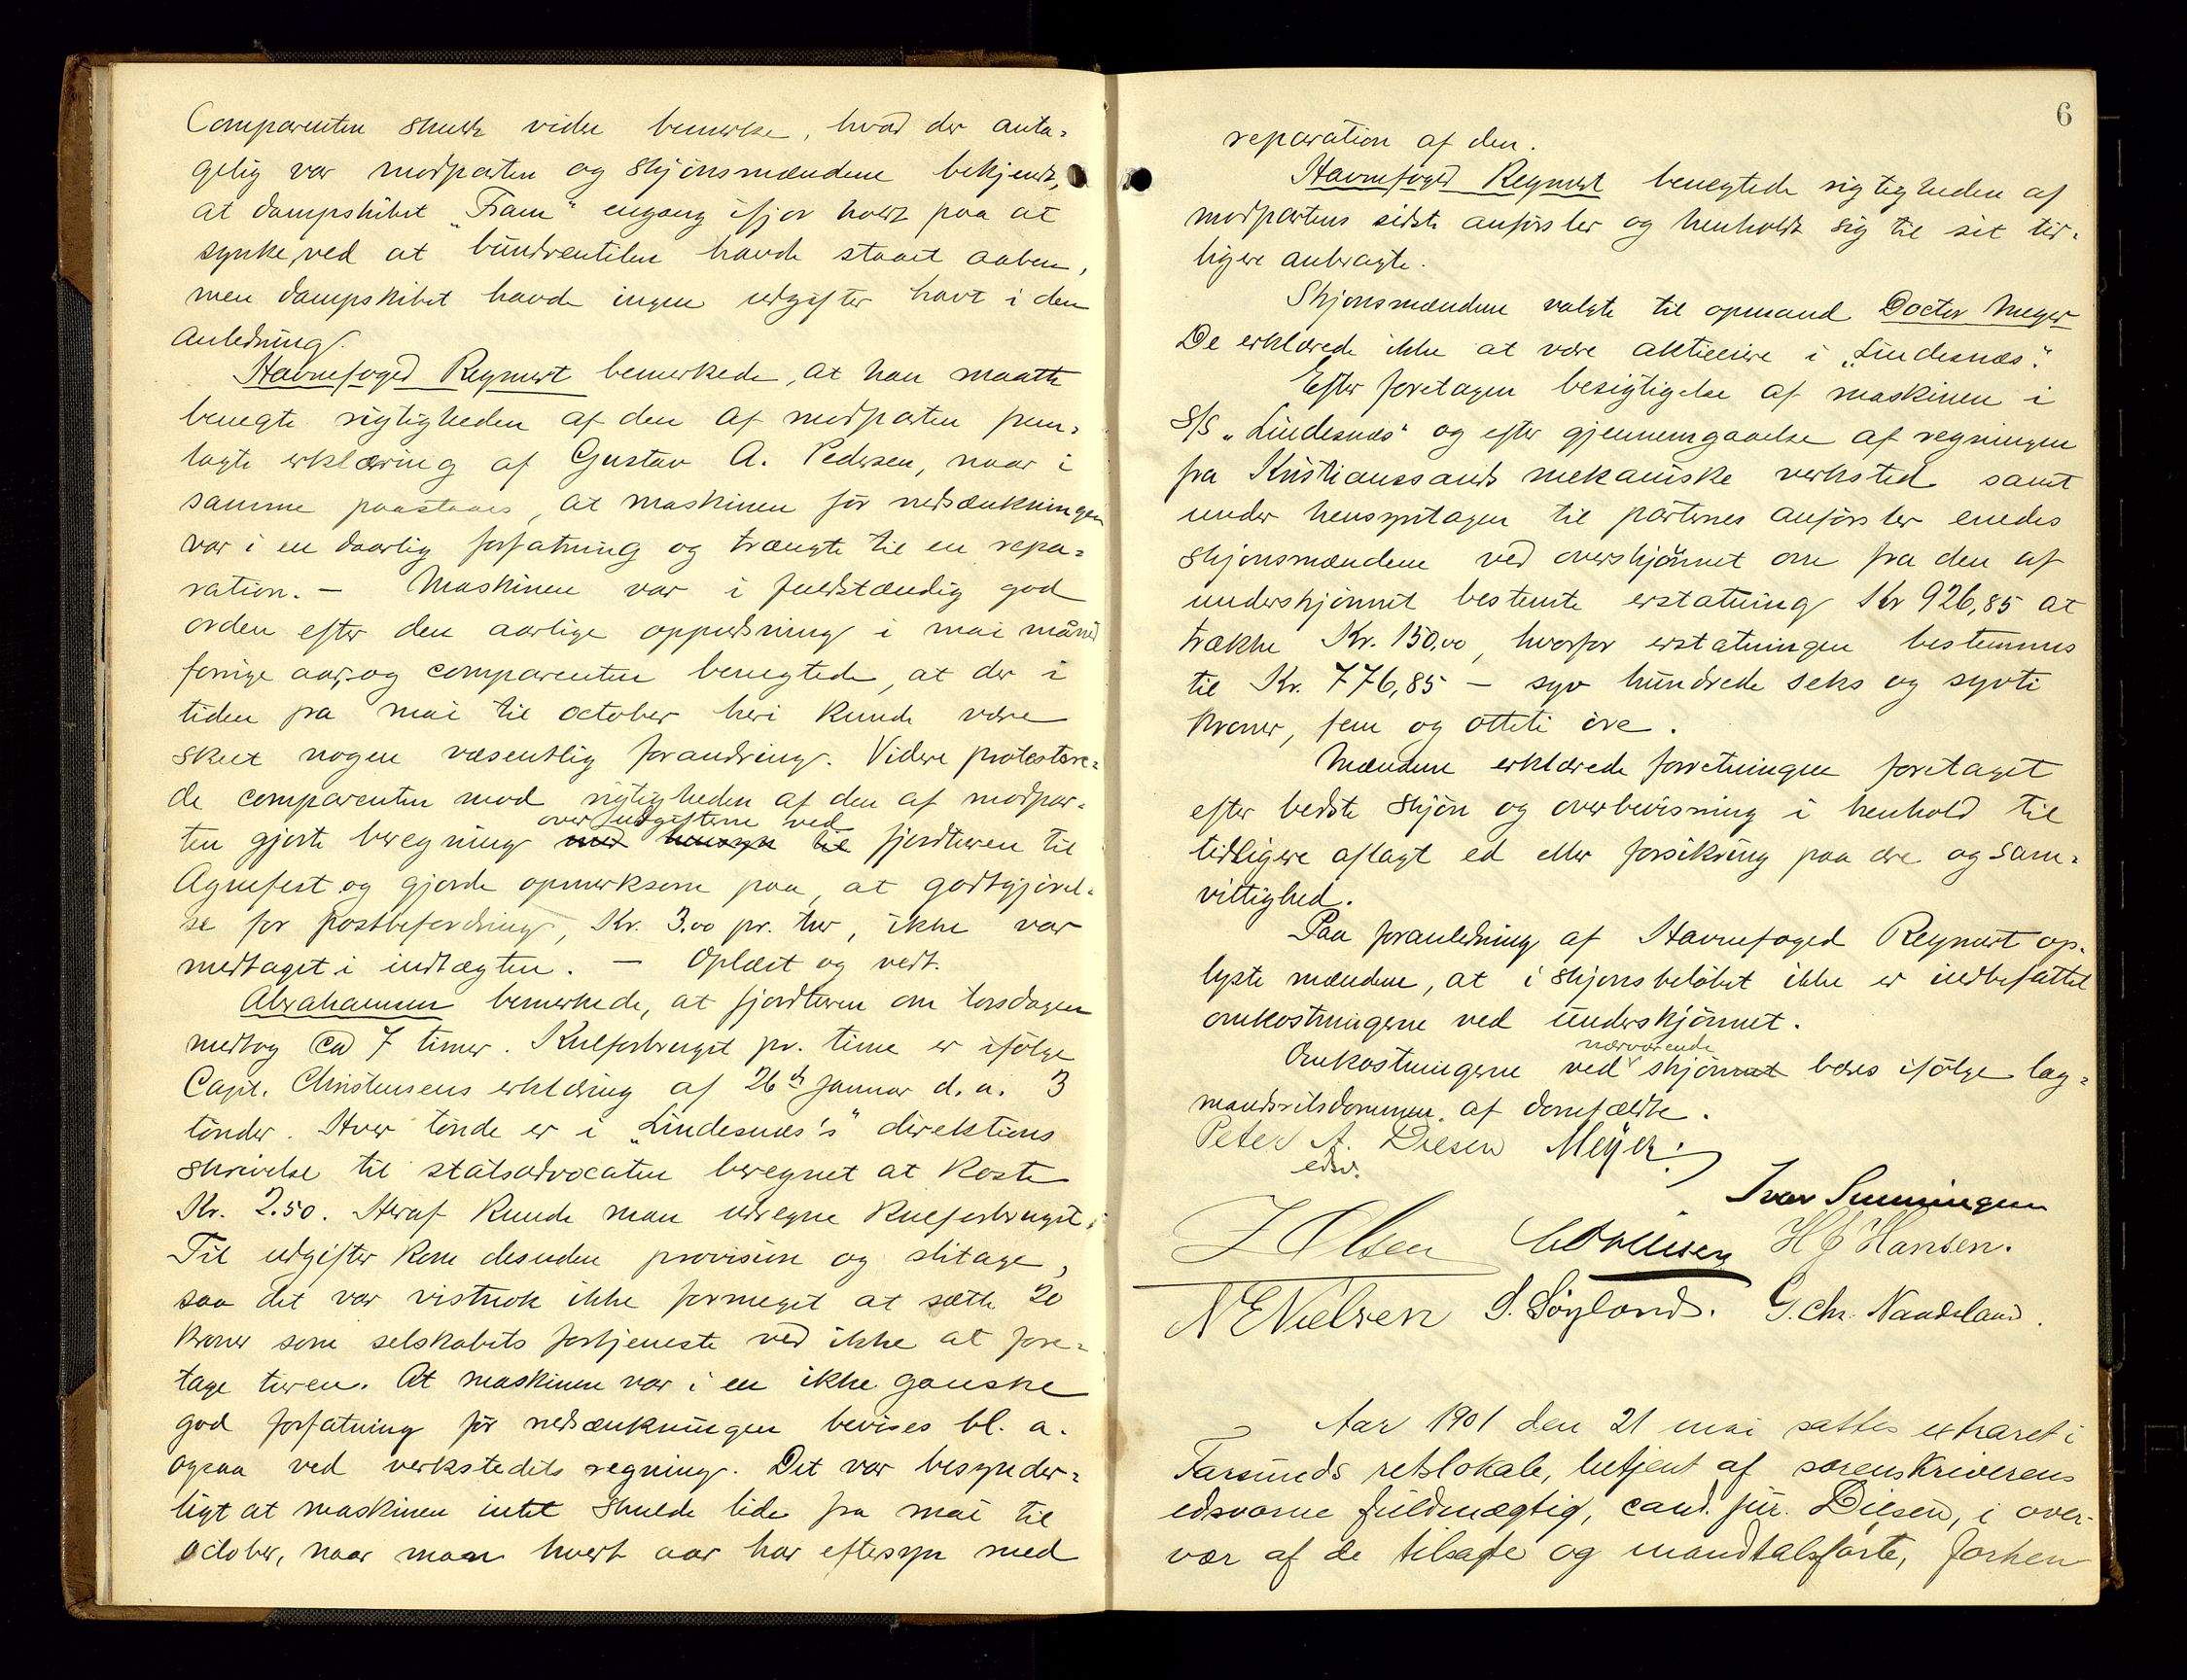 Comparenten skulde videre bemerke, hvad der anta-
gelig var modparten og skjønsmændene bekjendt,
at dampskibet „Fram“ engang ifjor holdt paa at
synke, ved at bundventilen havde staaet aaben,
men dampskibet havde ingen udgifter havt i den
anledning.
Havnefoged Reymert bemerkede, at han maatte
benegte rigtigheden af den af modparten frem-
lagte erklæring af Gustav A. Pedersen, naar i
samme paastaaes, at maskinen før nedsænkningen
var i en daarlig forfatning og trængte til en repa-
ration. – Maskinen var i fuldstændig god
orden efter den aarlige oppudsning i mai måned
forrige aar, og comparenten benegtede, at der i
tiden fra mai til october heri kunde være
skeet nogen væsentlig forandring. Videre protestere-
de comparenten mod rigtigheden af den af modpar-
over udgifterne ved
ten gjorte beregning med hensyn til fjordturen til
Agnefest og gjorde opmerksom paa, at godtgjørel-
se for postbefordring, Kr. 3.00 pr. tur, ikke var
medtaget i indtægten. – Oplæst og vedt.
Abrahamsen bemerkede, at fjordturen om torsdagen
medtog ca 7 timer. Kulforbruget pr. time er ifølge
Capt. Christensens erklæring af 26de Januar d. a. 3
tønder. Hver tønde er i „Lindesnæs's“ direktions
skrivelse til statsadvocaten beregnet at koste
Kr. 2.50. Heraf kunde man udregne kulforbruget.
Til udgifter kom desuden provision og slitage,
saa det var vistnok ikke formeget at sætte 20
kroner som selskabets fortjeneste ved ikke at fore-
tage turen. At maskinen var i en ikke ganske
god forfatning før nedsænkningen bevises bl. a.
ogsaa ved verkstedets regning. Det var besynder-
ligt at maskinen intet skulde lide fra mai til
october, naar man hvert aar har eftersyn med
6
reparation af den.
Havnefoged Reymert benegtede rigtigheden af
modpartens sidste anførsler og henholdt sig til sit tid-
ligere anbragte.
Skjønsmændene valgte til opmand Doctor Meyer
De erklærede ikke at være aktieeiere i „Lindesnæs“.
Efter foretagen besigtigelse af maskinen i
S/S „Lindesnæs“ og efter gjennemgaaelse af regningen
fra Kristianssands mekaniske verksted samt
under hensyntagen til parternes anførsler enedes
skjønsmændene ved overskjønnet om fra den af
underskjønnet bestemte erstatning Kr 926,85 at
trække Kr. 150.00, hvorfor erstatningen bestemmes
til Kr. 776,85 – syv hundrede seks og sytti
kroner, fem og otteti øre.
Mændene erklærede forretningen foretaget
efter bedste skjøn og overbevisning i henhold til
tidligere aflagt ed eller forsikring paa ære og sam-
vittighed.
Paa foranledning af Havnefoged Reymert op-
lyste mændene, at i skjønsbeløbet ikke er indbefattet
omkostningerne ved underskjønnet.
nærværende
Omkostningerne ved skjønnet bæres ifølge lag-
mandsretsdommen af domfældte.
Peter A. Diesen Meyer.
edsv.
Ivar Sunningen
J Olsen H J Hansen.
N E Nielsen S. Søyland. G. Chr. Naadeland.
Aar 1901 den 21 mai sattes extraret i
Farsunds retslokale, betjent af sorenskriverens
edsvorne fuldmægtig, cand. jur. Diesen, i over-
vær af de tilsagte og mandtalsførte, forhen